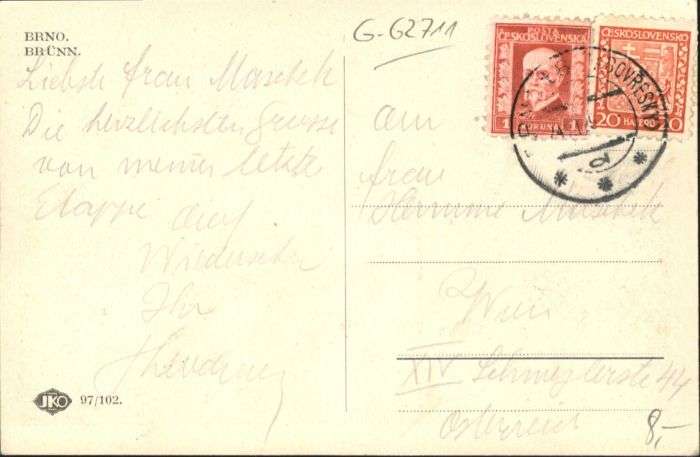 BRNO.
BRÜNN.
G-62711
Liebste Frau Maschek
Die herzlichsten Grüsse
von meiner letzte
Etappe auf
Wiedersehn
Ihr
JKO 97/102.
POŠTA
ČESKOSLOVENSKÁ
1 KORUNA 1
ČESKOSLOVENSKO
20 HALÉŘŮ 20
an
Frau
Hermine Maschek
Wien
XIV Schweglerstr 44
Österreich
8,-